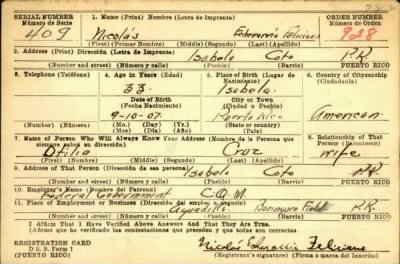 SERIAL NUMBER 1. Name (Print) Nombre (Letra de Imprenta) ORDER NUMBER
Número de Serie Número de Orden
409 Nicolás Echevarria Feliciano 928
(First) (Primer Nombre) (Middle) (Segundo Nombre) (Last) (Apellido)
2. Address (Print) Dirección (Letra de Imprenta)
Isabela Coto P.R.
(Number and street) (Número y calle) (Town) (Pueblo) PUERTO RICO
3. Telephone (Teléfono) 4. Age in Years (Edad) 5. Place of Birth (Lugar de Nacimiento) 6. Country of Citizenship (Ciudadanía)
33 Isabela
Date of Birth (Fecha Nacimiento) City or Town (Ciudad o Pueblo)
9-10-07 Puerto Rico American
(Number) (Número) (Mo.) (Day) (Yr.) (Mes) (Día) (Año) (State or country) (Estado o país)
7. Name of Person Who Will Always Know Your Address (Nombre de la Persona que siempre sabrá su dirección) 8. Relationship of That Person (Parentesco)
Otilia Cruz Wife
(First) (Nombre) (Middle) (Segundo Nombre) (Last) (Apellido)
9. Address of That Person (Dirección de esa persona)
Isabela Coto P.R.
(Number and street) (Número y calle) (Town) (Pueblo) PUERTO RICO
10. Employer's Name (Nombre del Patrono)
Federal Government C.Q.M.
11. Place of Employment or Business (Dirección del empleo o negocio)
Aguadilla Borinquen Field P.R.
(Number and street) (Número y calle) (Town) (Pueblo) PUERTO RICO
I Affirm That I Have Verified Above Answers And That They Are True.
(Afirmo que he verificado las contestaciones que preceden y que todas son correctas.)
REGISTRATION CARD
D. S. S. Form 1 Nicolás Echevarria Feliciano
PUERTO RICO (Registrant's signature) (Firma o marca del Inscrito)